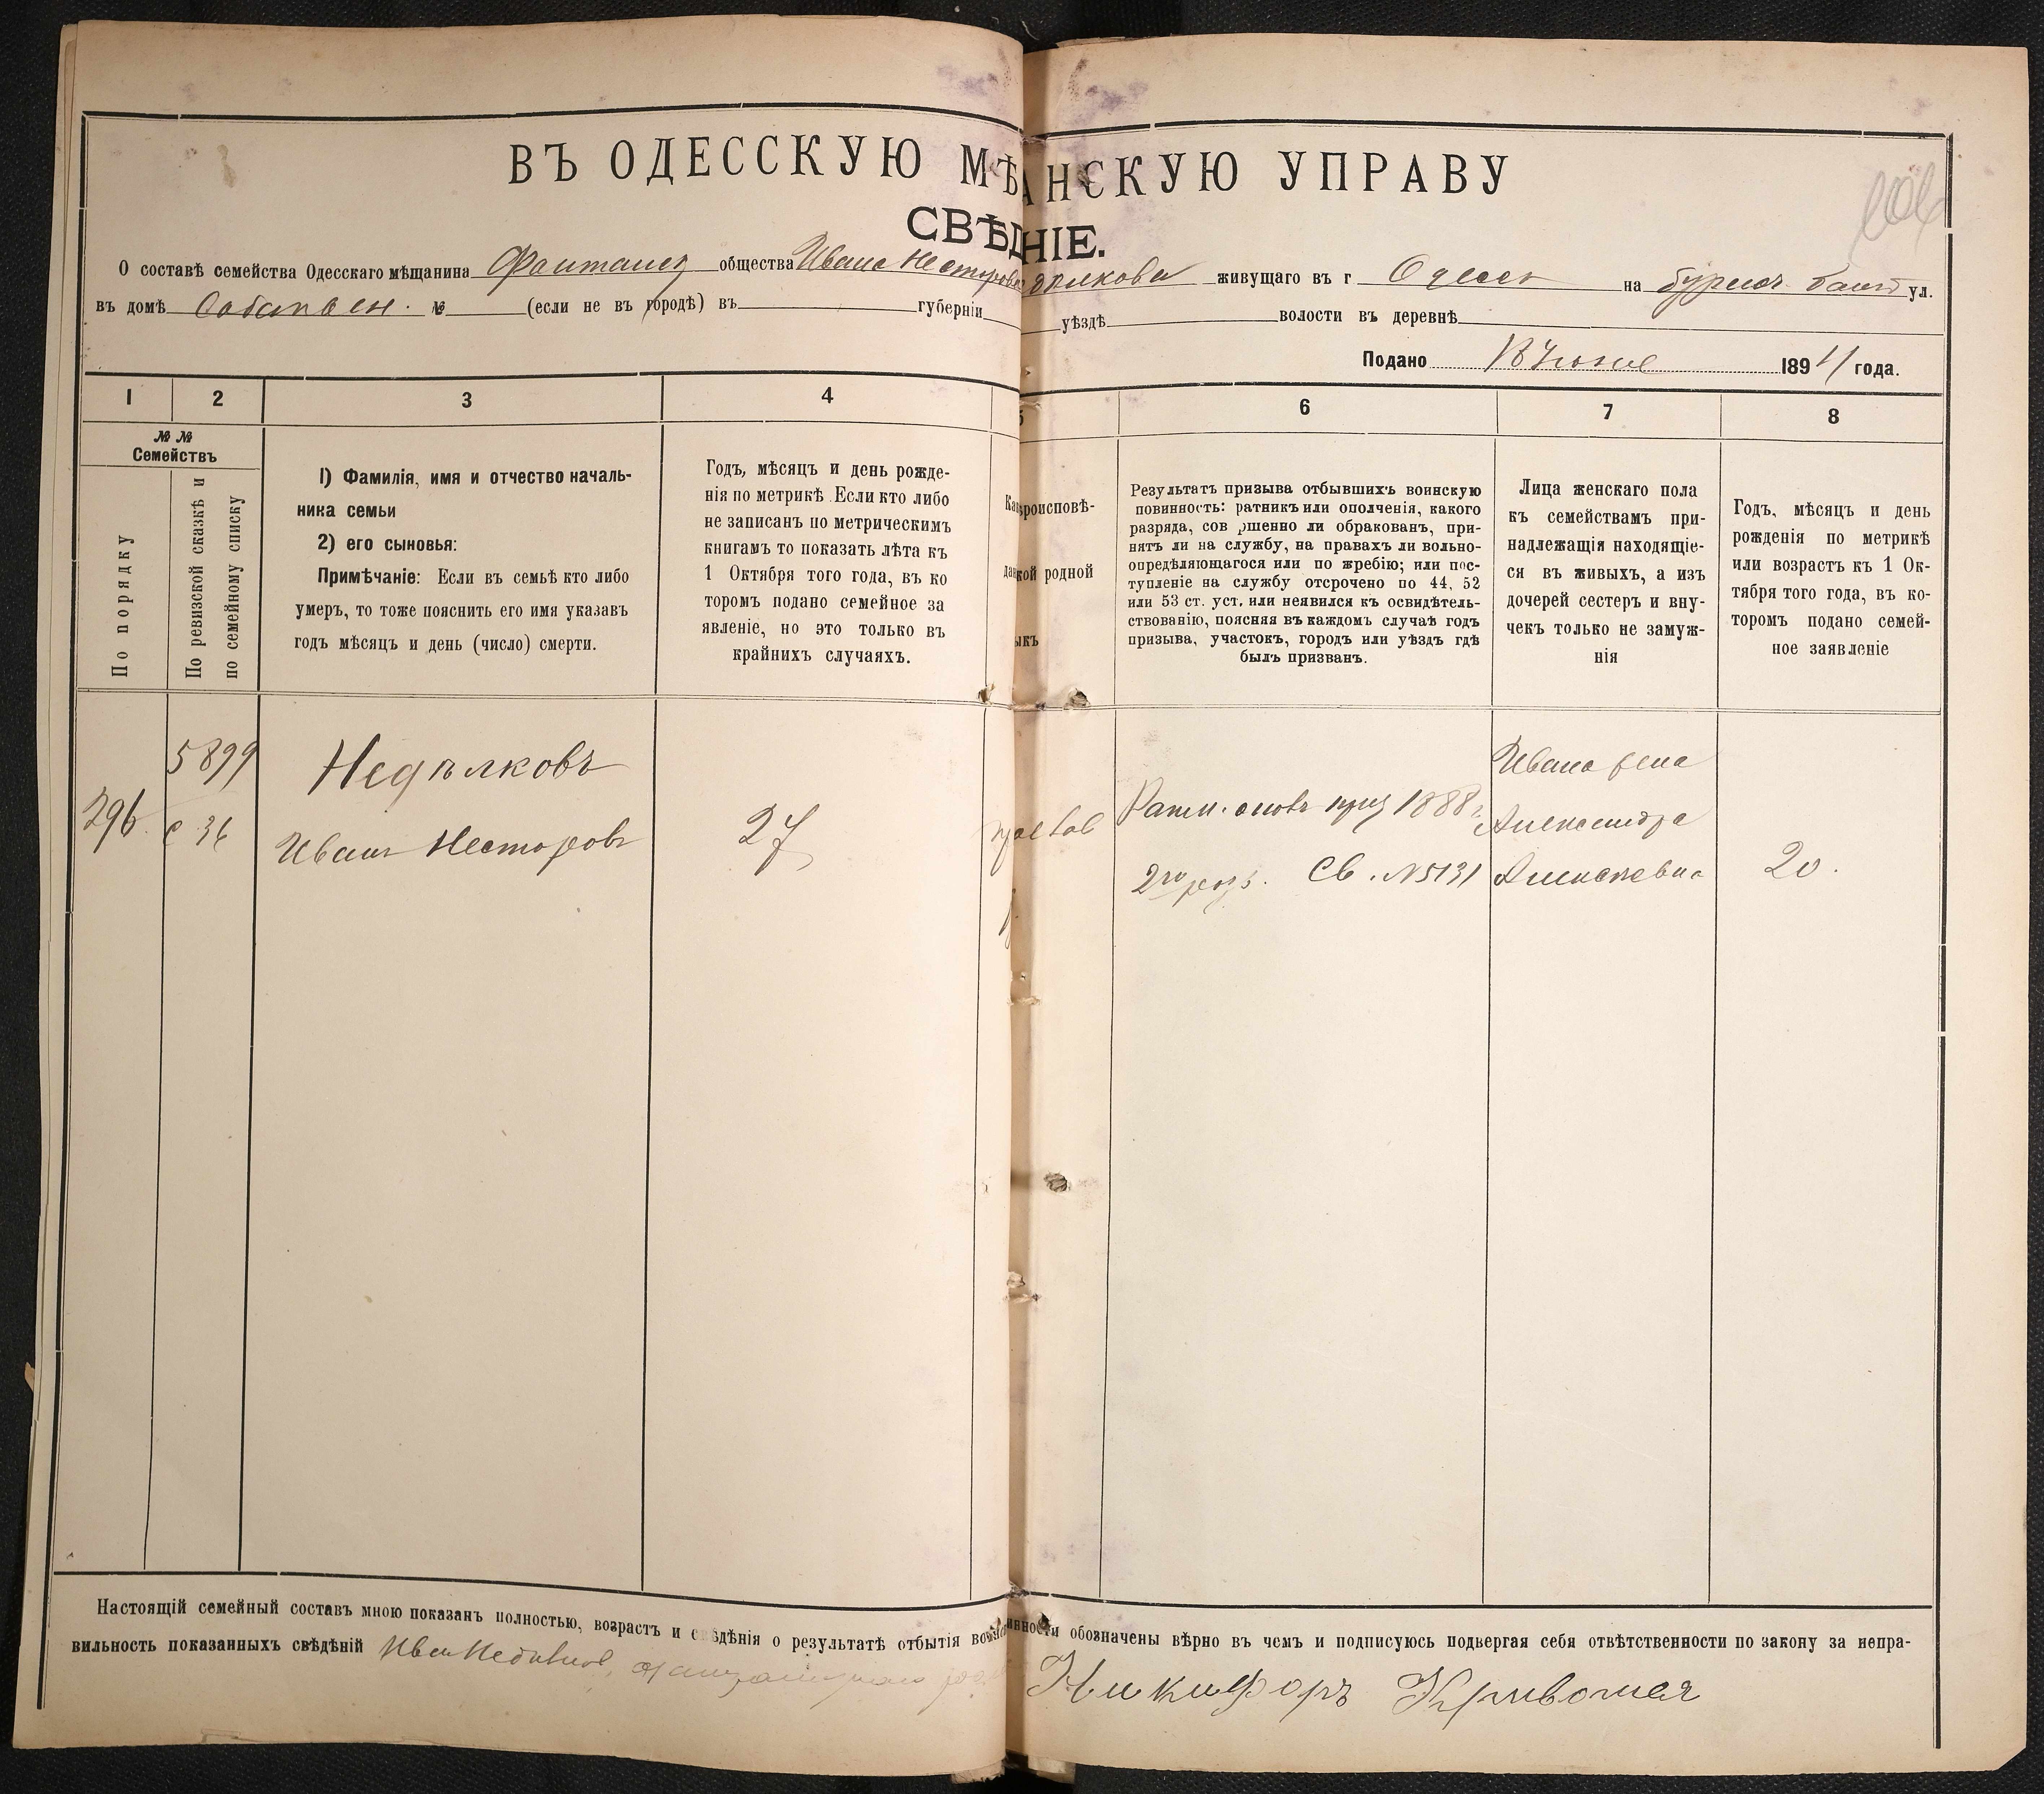 ВЪ ОДЕССКУЮ МѢ АНСКУЮ УПРАВУ
СВѢД НІЕ.
О составѣ семейства Одесскаго мѣщанина Фонтанск общества Ивана Несторова ѣлкова живущаго въ г Одессѣ на ул.
въ домѣ № (если не въ городѣ) въ губерніи уѣздѣ волости въ деревнѣ
Подано 1891 года.
1 2 3 4 5 6 7 8
№ №
Семействъ
По порядку
По ревизской сказкѣ и
по семейному списку
1) Фамилія, имя и отчество началь-
ника семьи
2) его сыновья:
Примѣчаніе: Если въ семьѣ кто либо
умеръ, то тоже пояснить его имя указавъ
годъ мѣсяцъ и день (число) смерти.
Годъ, мѣсяцъ и день рожде-
нія по метрикѣ Если кто либо
не записанъ по метрическимъ
книгамъ то показать лѣта къ
1 Октября того года, въ ко
торомъ подано семейное за
явленіе, но это только въ
крайнихъ случаяхъ.
роисповѣ-
кой родной
ыкъ
Результатъ призыва отбывшихъ воинскую
повинность: ратникъ или ополченія, какого
разряда, сов ршенно ли обракованъ, при-
нятъ ли на службу, на правахъ ли вольно-
опредѣляющогося или по жребію; или пос-
тупленіе на службу отсрочено по 44, 52
или 53 ст. уст. или неявился къ освидѣтель-
ствованію, поясняя въ каждомъ случаѣ годъ
призыва, участокъ, городъ или уѣздъ гдѣ
былъ призванъ.
Лица женскаго пола
къ семействамъ при-
надлежащія находящіе-
ся въ живыхъ, а изъ
дочерей сестеръ и вну-
чекъ только не замуж-
нія
Годъ, мѣсяцъ и день
рожденія по метрикѣ
или возрастъ къ 1 Ок-
тября того года, въ ко-
торомъ подано семей-
ное заявленіе
296
5899
с 36
Недѣлковъ
Иванъ Несторовъ
27
правосл
Ратн. ополч приз 1888 г.
2го разр. Св. №5131
Ивана жена
Александра
20.
Настоящій семейный составъ мною показанъ полностью, возрастъ и с ѣдѣнія о результатѣ отбытія во инности обозначены вѣрно въ чемъ и подписуюсь подвергая себя отвѣтственности по закону за непра-
вильность показанныхъ свѣдѣній Иван
Никифоръ